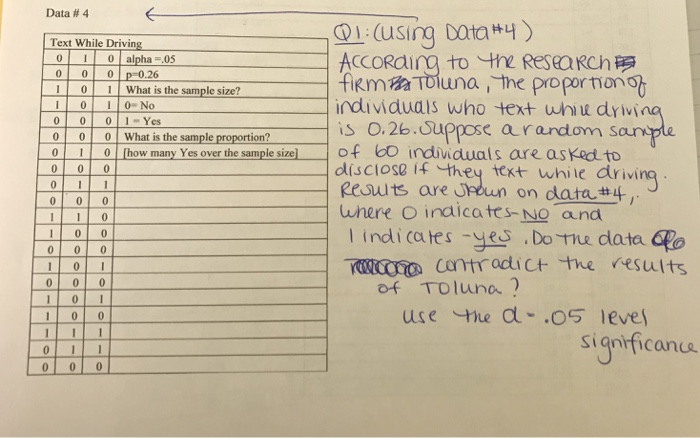 Data # 4
Text While Driving
0 1 0 alpha =.05
0 0 0 p=0.26
1 0 1 What is the sample size?
1 0 1 0= No
0 0 0 1 = Yes
0 0 0 What is the sample proportion?
0 1 0 [how many Yes over the sample size]
0 0 0
0 1 1
0 0 0
1 1 0
1 0 0
0 0 0
1 0 1
0 0 0
1 0 1
1 0 0
1 1 1
0 1 1
0 0 0
Q1: (using Data #4)
ACCORDing to the ResearcH
firm Toluna, the proportion of
individuals who text while driving
is 0.26. Suppose a random sample
of 60 individuals are asked to
disclose if they text while driving.
Results are shown on data #4,
where 0 indicates-NO and
1 indicates -yes. Do the data
contradict the results
of Toluna?
use the α = .05 level
significance